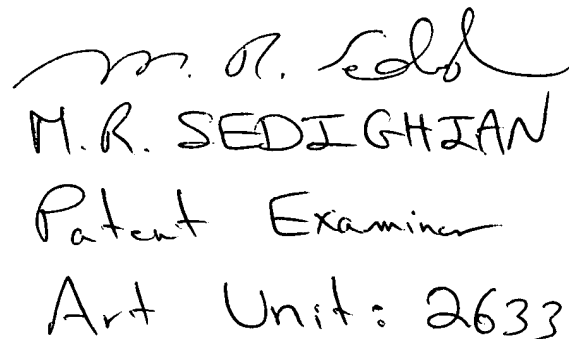 M. R. Sed
M.R. SEDIGHIAN
Patent Examiner
Art Unit: 2633